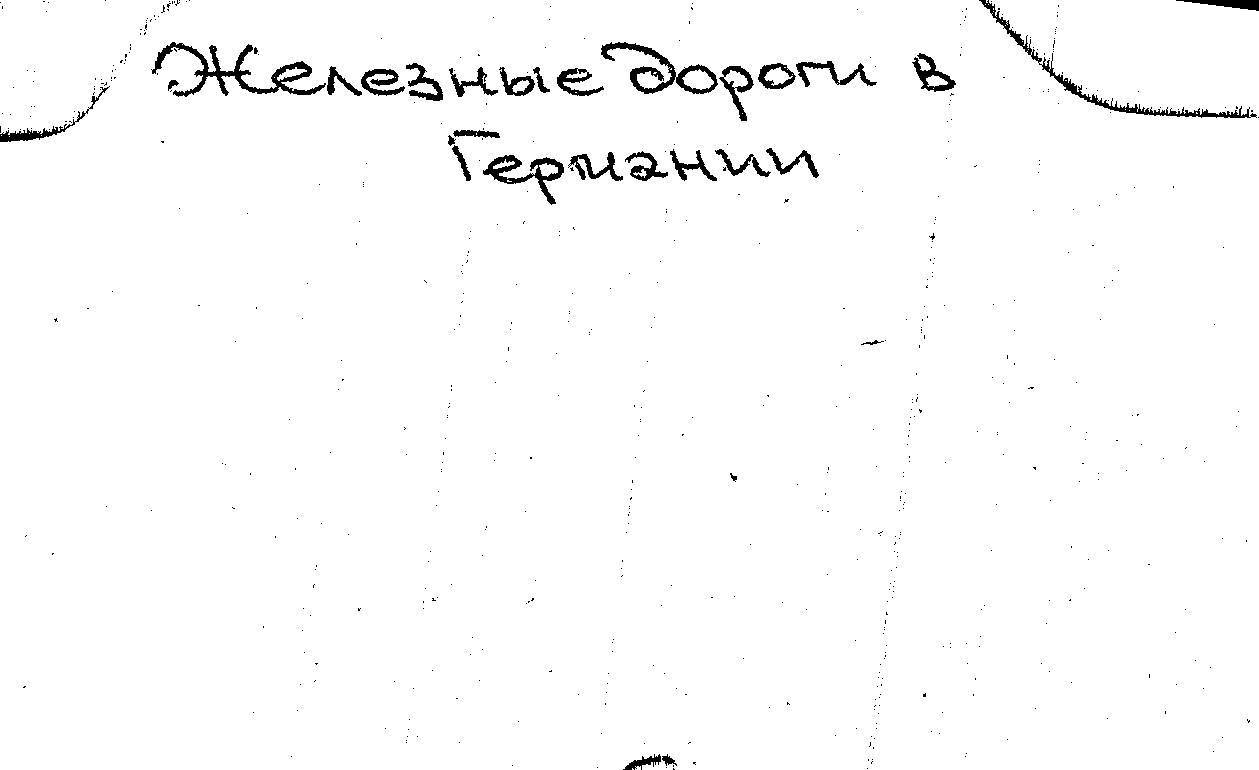 Железные дороги в
Германии